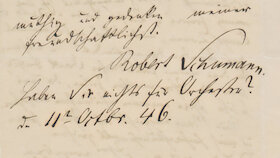 muthig und gedenken meiner
freundschaftlichst.
Robert Schumann.
Haben Sie nichts für Orchester?
d. 11t Octbr. 46.